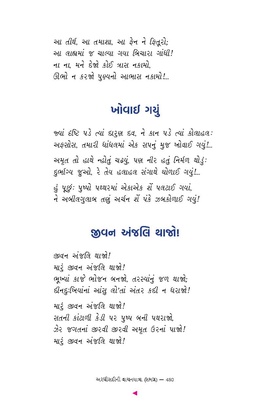 આ તીર્થ, આ તમાશા, આ ફેન ને ફિતૂરો;
આ લાહ્યમાં જ ચાલ્યા ગયા બિચારા ગાંધી!
ના ના, મને દેજો કોઈ ત્રાસ નકામો,
ઊભો ન કરજો પુણ્યનો આભાસ નકામો!..
ખોવાઈ ગયું
જ્યાં દૃષ્ટિ પડે ત્યાં દારુણ દવ, ને કાન પડે ત્યાં કોલાહલ:
અફસોસ, તમારી ધાંધલમાં એક સપનું મુજ ખોવાઈ ગયું!..
અમૃત તો હાથે ન્હોતું ચઢ્યું, પણ નીર હતું નિર્મળ થોડું:
દુર્ભાગ્ય જુઓ, રે તેય હલાહલ સંગાથે ઘોળાઈ ગયું!..
હું પૂછું: પુષ્પો પથ્થરમાં એકાએક શેં પલટાઈ ગયાં,
ને અબીલગુલાબ તણું અર્ચન શેં પંકે ઝબકોળાઈ ગયું!
જીવન અંજલિ થાજો!
જીવન અંજલિ થાજો!
મારું જીવન અંજલિ થાજો!
ભૂખ્યાં કાજે ભોજન બનજો, તરસ્યાંનું જળ થાજો;
દીનદુઃખિયાંનાં આંસુ લો'તાં અંતર કદી ન ધરાજો!
મારું જીવન અંજલિ થાજો!
સતની કાંટાળી કેડી પર પુષ્પ બની પથરાજો,
ઝેર જગતનાં જીરવી જીરવી અમૃત ઉરનાં પાજો!
મારું જીવન અંજલિ થાજો!